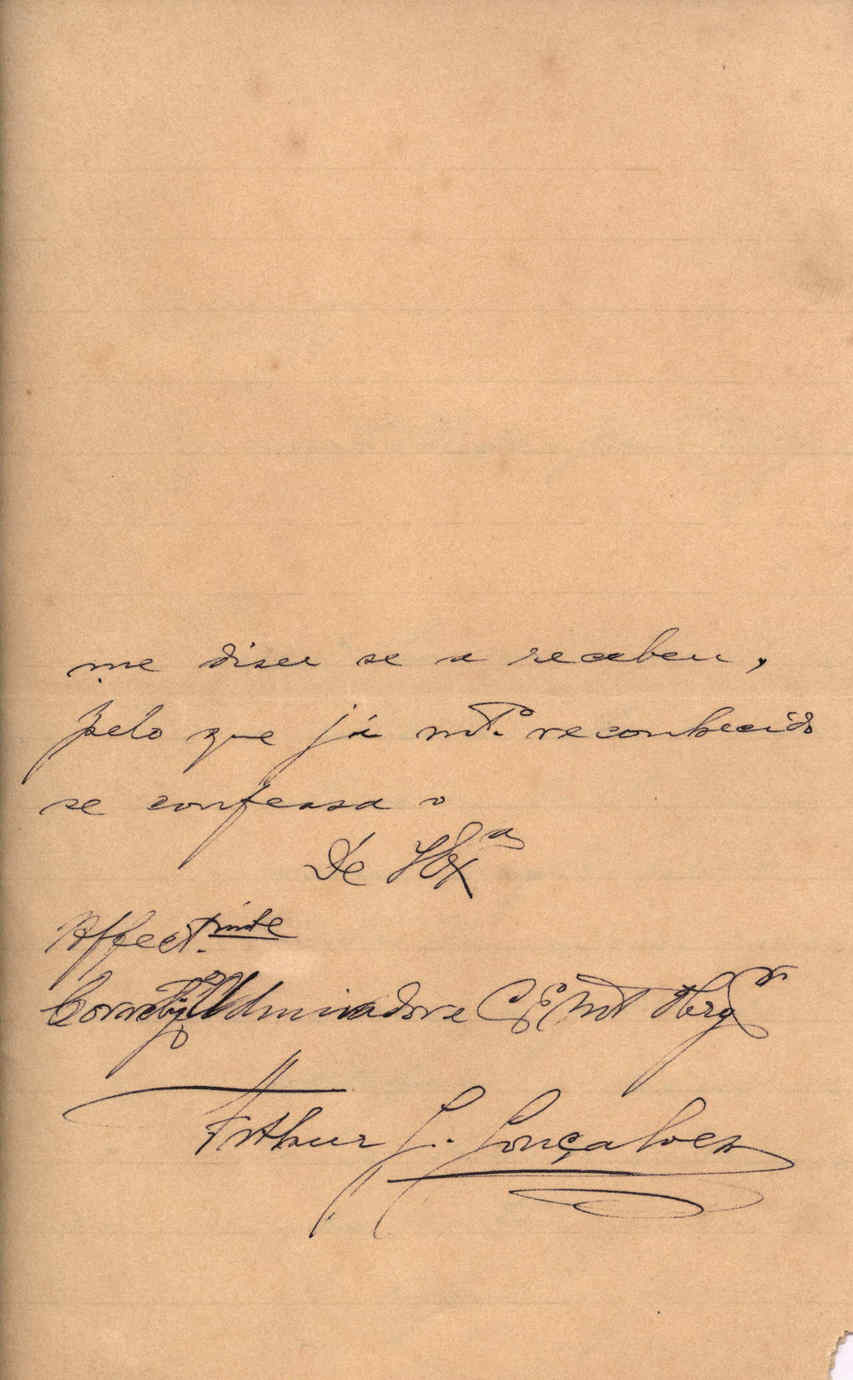 me diser se a recebeu,
pelo que já mtº. reconhecido
se confessa o
De VExª
Affect.mte
Admirador e C. E. Mt Obrgº
Arthur G. Gonçalves